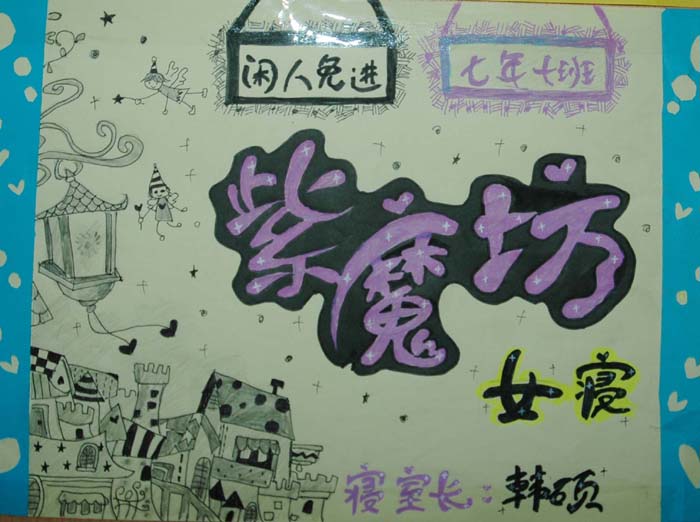 闲人免进
七年七班
紫魔坊
女寝
寝室长：韩硕